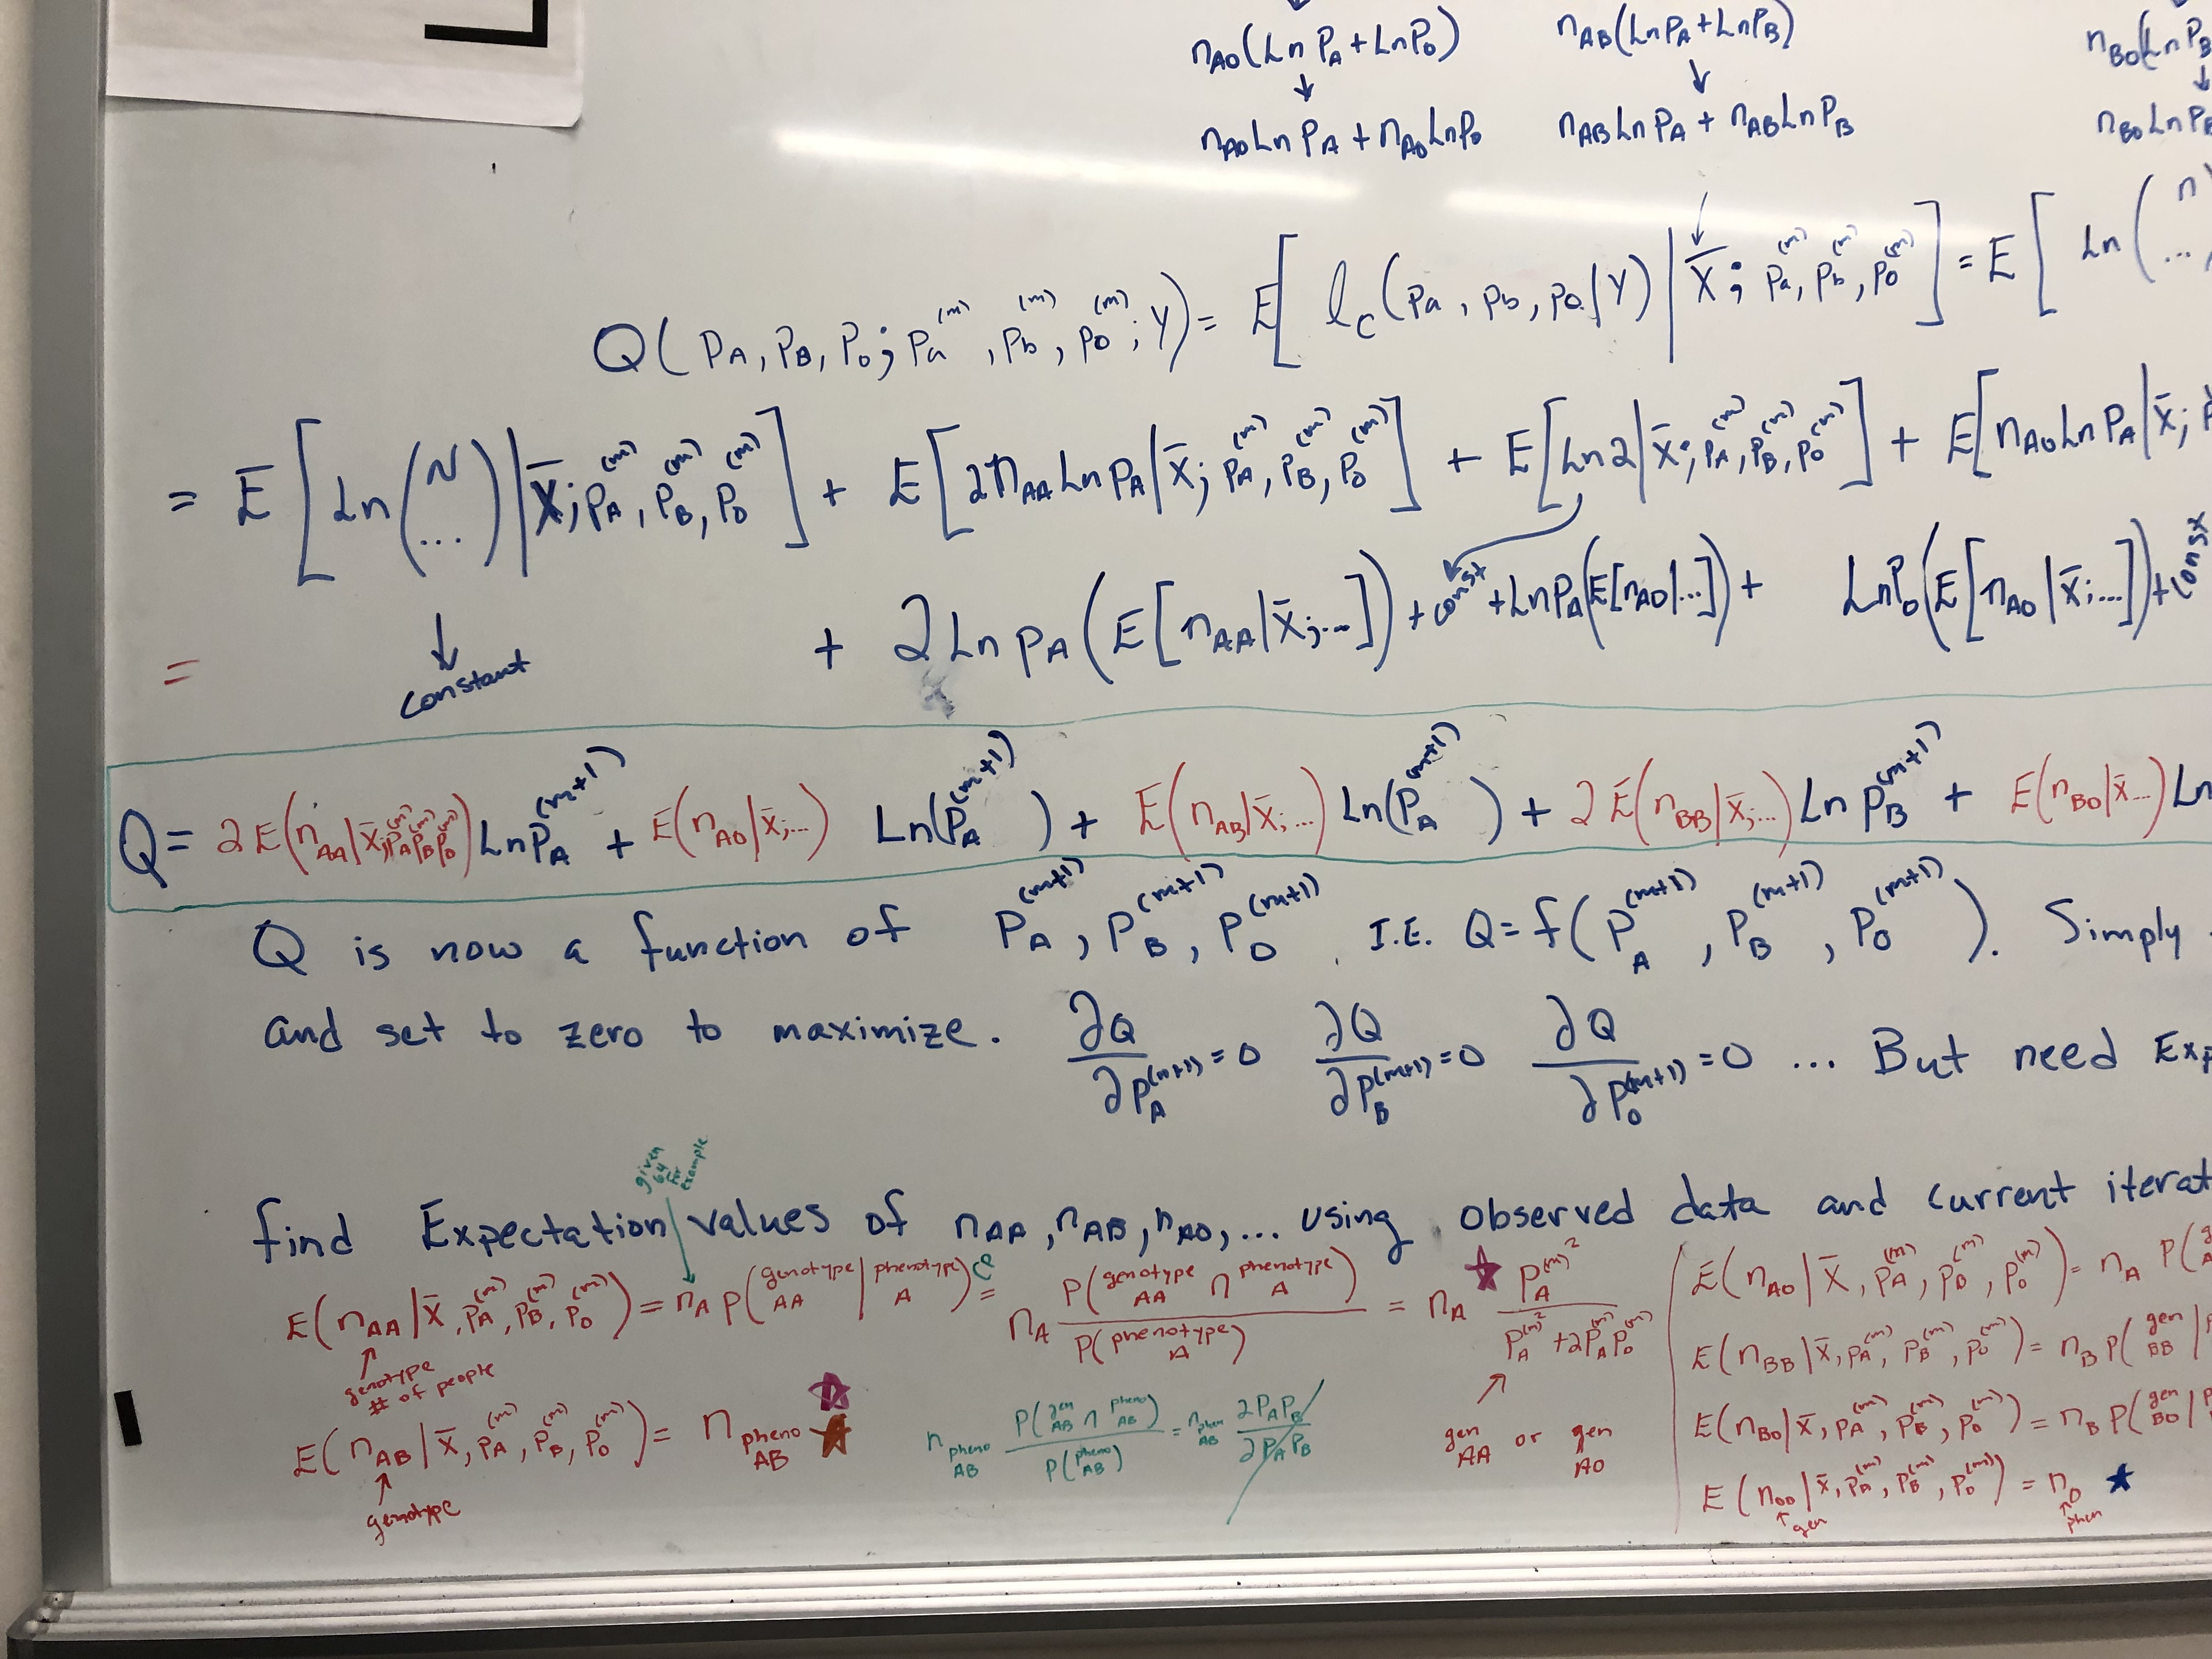 n_AO(Ln P_A + Ln P_O)   n_AB(Ln P_A + Ln P_B)   n_BO(Ln P_B
↓   ↓   ↓
n_AO Ln P_A + n_AO Ln P_O   n_AB Ln P_A + n_AB Ln P_B   n_BO Ln P_B
Q(P_A, P_B, P_O; P_a^(m), P_b^(m), P_O^(m); Y) = E[ℓ_c(Pa, Pb, Po | Y) | X̄; P_a^(m), P_b^(m), P_O^(m)] = E[Ln(n ...
= E[Ln(N ...) | X̄; P_A^(m), P_B^(m), P_O^(m)] + E[2n_AA Ln P_A | X̄; P_A^(m), P_B^(m), P_O^(m)] + E[Ln2 | X̄; P_A^(m), P_B^(m), P_O^(m)] + E[n_AO Ln P_A | X̄; P
= ↓ constant + 2 Ln P_A (E[n_AA | X̄; ...]) + const + Ln P_A (E[n_AO | ...]) + Ln P_O (E[n_AO | X̄; ...]) + const
Q = 2E(n_AA | X̄; P_A^(m) P_B^(m) P_O^(m)) Ln P_A^(m+1) + E(n_AO | X̄; ...) Ln(P_A^(m+1)) + E(n_AB | X̄; ...) Ln(P_A^(m+1)) + 2E(n_BB | X̄; ...) Ln P_B^(m+1) + E(n_BO | X̄ ...) Ln
Q is now a function of P_A^(m+1), P_B^(m+1), P_O^(m+1). I.E. Q = f(P_A^(m+1), P_B^(m+1), P_O^(m+1)). Simply
and set to zero to maximize. ∂Q/∂P_A^(m+1) = 0 ∂Q/∂P_B^(m+1) = 0 ∂Q/∂P_O^(m+1) = 0 ... But need Exp
given
example
find Expectation values of n_AA, n_AB, n_AO, ... using observed data and current iterat
E(n_AA | X̄, P_A^(m), P_B^(m), P_O^(m)) = n_A P(genotype AA | phenotype A) = n_A P(genotype AA ∩ phenotype A) / P(phenotype A) = n_A ★ P_A^(m)² / (P_A^(m)² + 2P_A^(m) P_O^(m))
↑ genotype
# of people
↗
gen AA or gen AO
E(n_AB | X̄, P_A^(m), P_B^(m), P_O^(m)) = n_pheno AB ★ n_pheno AB P(gen AB ∩ pheno AB) / P(pheno AB) = n_pheno AB 2P_A P_B / 2P_A P_B
↑
genotype
E(n_AO | X̄, P_A^(m), P_B^(m), P_O^(m)) = n_A P(
E(n_BB | X̄, P_A^(m), P_B^(m), P_O^(m)) = n_B P(gen BB |
E(n_BO | X̄, P_A^(m), P_B^(m), P_O^(m)) = n_B P(gen BO |
E(n_OO | X̄, P_A^(m), P_B^(m), P_O^(m)) = n_O ★
↑ gen   ↑ phen